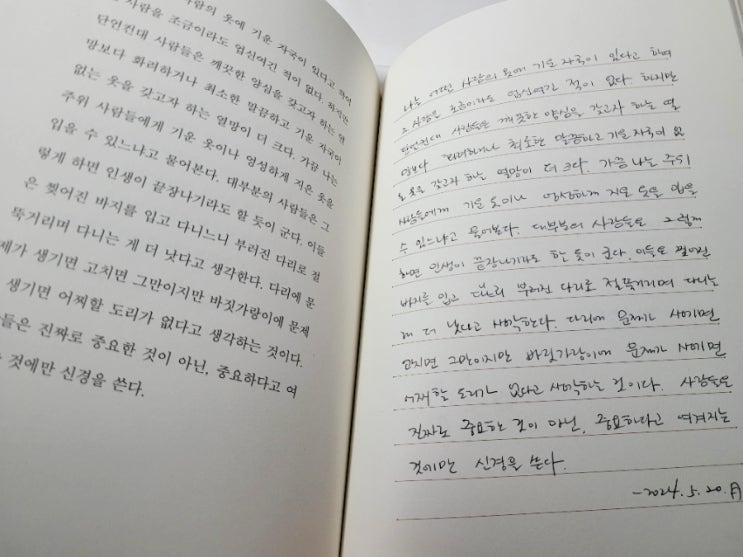 사람의 옷에 기운 자국이 있다고 하여
사람을 조금이라도 업신여긴 적이 없다. 하지만
단언컨대 사람들은 깨끗한 양심을 갖고자 하는 열
망보다 화려하거나 최소한 말끔하고 기운 자국이
없는 옷을 갖고자 하는 열망이 더 크다. 가끔 나는
주위 사람들에게 기운 옷이나 엉성하게 지은 옷을
입을 수 있느냐고 물어본다. 대부분의 사람들은 그
렇게 하면 인생이 끝장나기라도 할 듯이 군다. 이들
은 찢어진 바지를 입고 다니느니 부러진 다리로 절
뚝거리며 다니는 게 더 낫다고 생각한다. 다리에 문
제가 생기면 고치면 그만이지만 바짓가랑이에 문제
생기면 어찌할 도리가 없다고 생각하는 것이다.
들은 진짜로 중요한 것이 아닌, 중요하다고 여
것에만 신경을 쓴다.
나는 어떤 사람의 옷에 기운 자국이 있다고 하여
그 사람을 조금이라도 업신여긴 적이 없다. 하지만
단언컨대 사람들은 깨끗한 양심을 갖고자 하는 열
망보다 화려하거나 최소한 말끔하고 기운 자국이 없
는 옷을 갖고자 하는 열망이 더 크다. 가끔 나는 주위
사람들에게 기운 옷이나 엉성하게 지은 옷을 입을
수 있느냐고 물어본다. 대부분의 사람들은 그렇게
하면 인생이 끝장나기라도 할 듯이 군다. 이들은 찢어진
바지를 입고 부러진 다리로 절뚝거리며 다니는
게 더 낫다고 생각한다. 다리에 문제가 생기면
고치면 그만이지만 바짓가랑이에 문제가 생기면
어찌할 도리가 없다고 생각하는 것이다. 사람들은
진짜로 중요한 것이 아닌, 중요하다고 여겨지는
것에만 신경을 쓴다.
-2024. 5. 20. 月